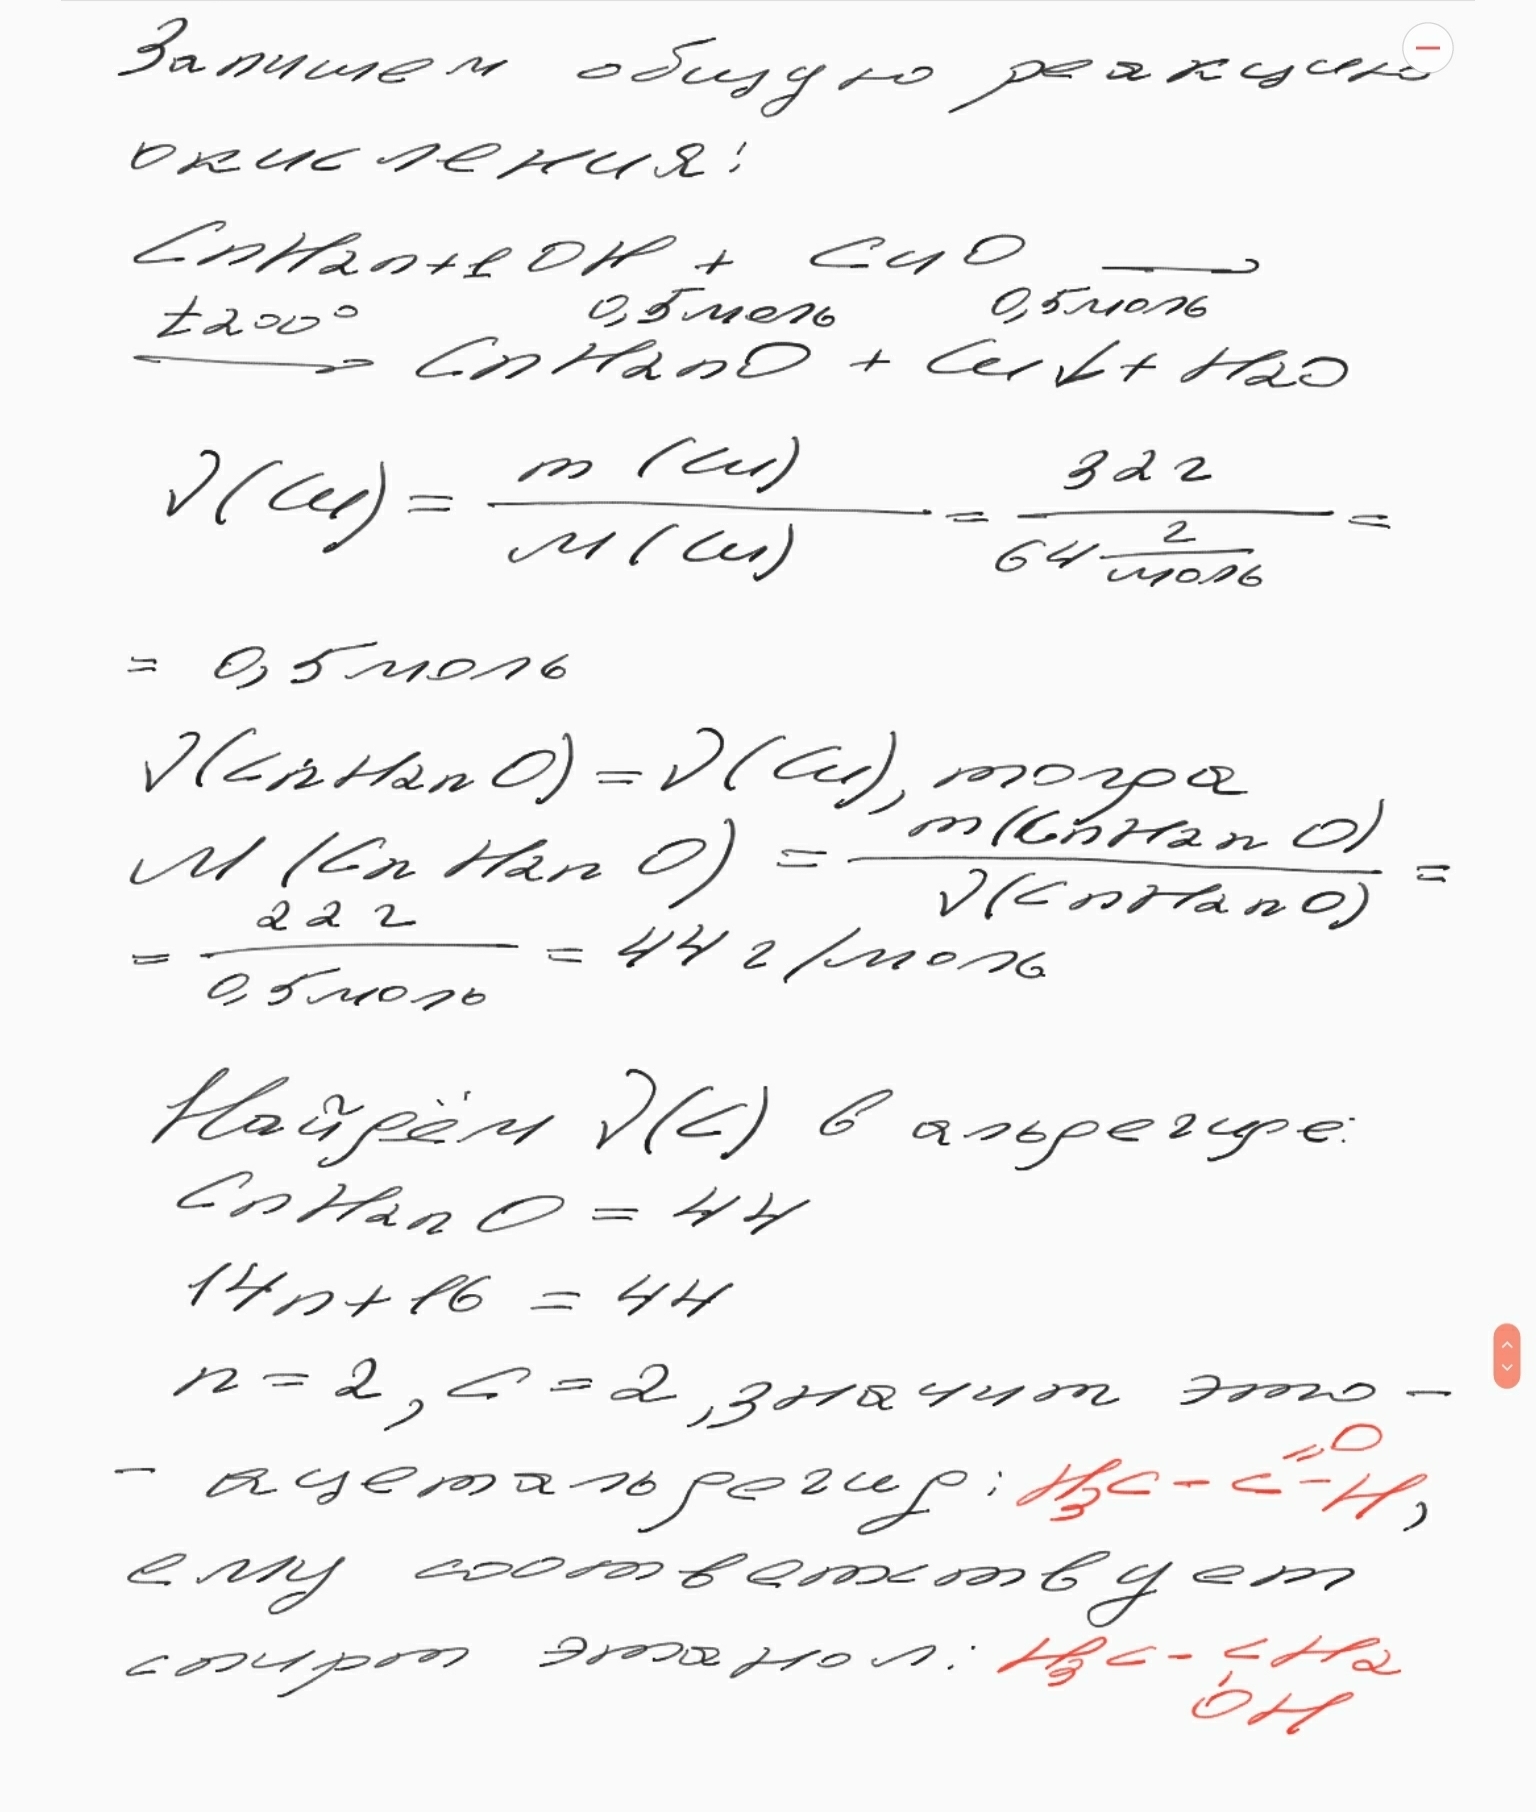 Запишем общую реакцию
окисления:
CnH2n+1OH + CuO →
t200° 0,5моль 0,5моль
→ CnH2nO + Cu↓ + H2O
ν(Cu) = m(Cu) / M(Cu) = 32г / 64 г/моль =
= 0,5моль
ν(CnH2nO) = ν(Cu), тогда
M(CnH2nO) = m(CnH2nO) / ν(CnH2nO) =
= 22г / 0,5моль = 44 г/моль
Найдём ν(C) в альдегиде:
CnH2nO = 44
14n+16 = 44
n = 2, C = 2, значит это -
- ацетальдегид: H3C-C=O-H,
ему соответствует
спирт этанол: H3C-CH2
OH